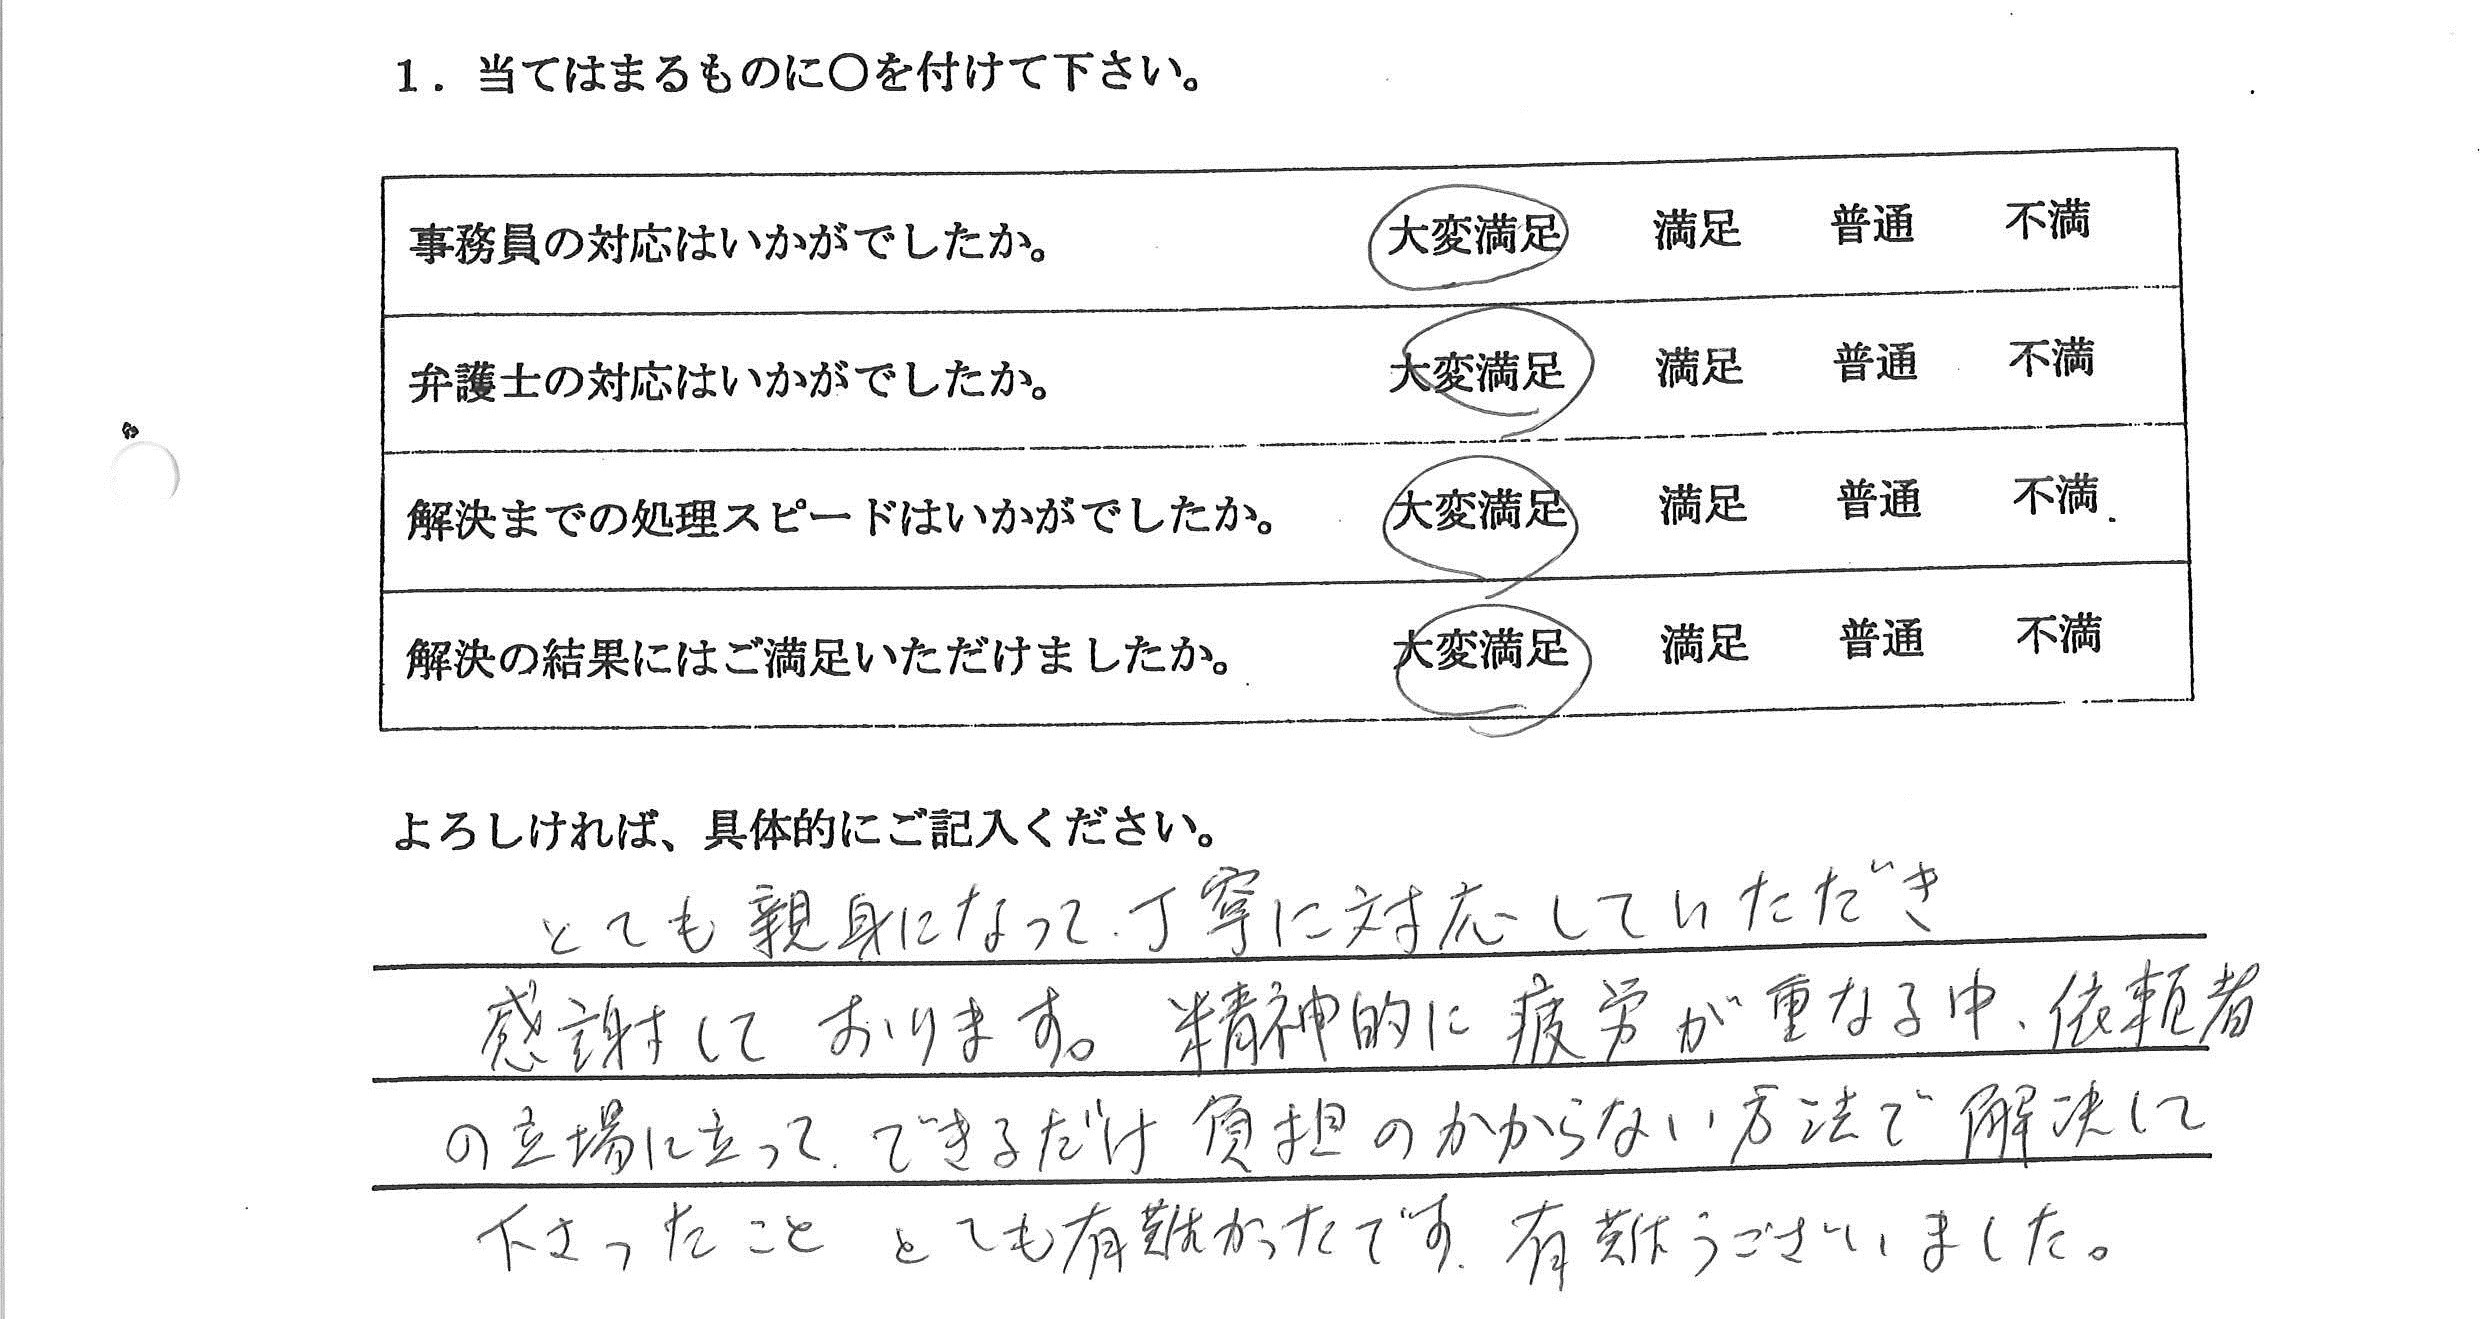 1．当てはまるものに〇を付けて下さい。
事務員の対応はいかがでしたか。 大変満足 満足 普通 不満
弁護士の対応はいかがでしたか。 大変満足 満足 普通 不満
解決までの処理スピードはいかがでしたか。 大変満足 満足 普通 不満
解決の結果にはご満足いただけましたか。 大変満足 満足 普通 不満
よろしければ、具体的にご記入ください。
とても親身になって、丁寧に対応していただき
感謝しております。精神的に疲労が重なる中、依頼者
の立場に立って、できるだけ負担のかからない方法で解決して
下さったこと とても有難かったです。有難うございました。